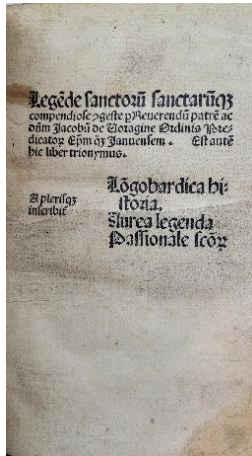 Legēde sanctorū sanctarūqꝫ
compendiose ꝯgeste ꝑ Reuerendū patrē ac
dn̄m Jacobū de Voragine Ordinis Pre-
dicatoꝝ Ep̄m qꝫ Januensem. Est autē
hic liber trionymus.
A plerisqꝫ
inscribit᷑
Lōgobardica hi-
storia.
Aurea legenda
Passionale scōꝝ